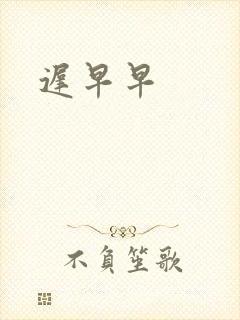 遲早早
不負笙歌